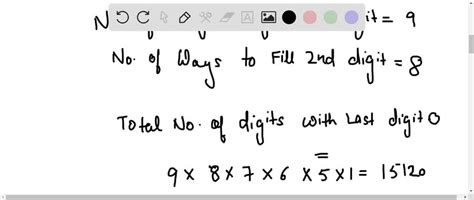 N it = 9
No. of Ways to Fill 2nd digit = 8
Total No. of digits with Last digit 0
=
9 × 8 × 7 × 6 × 5 × 1 = 15120